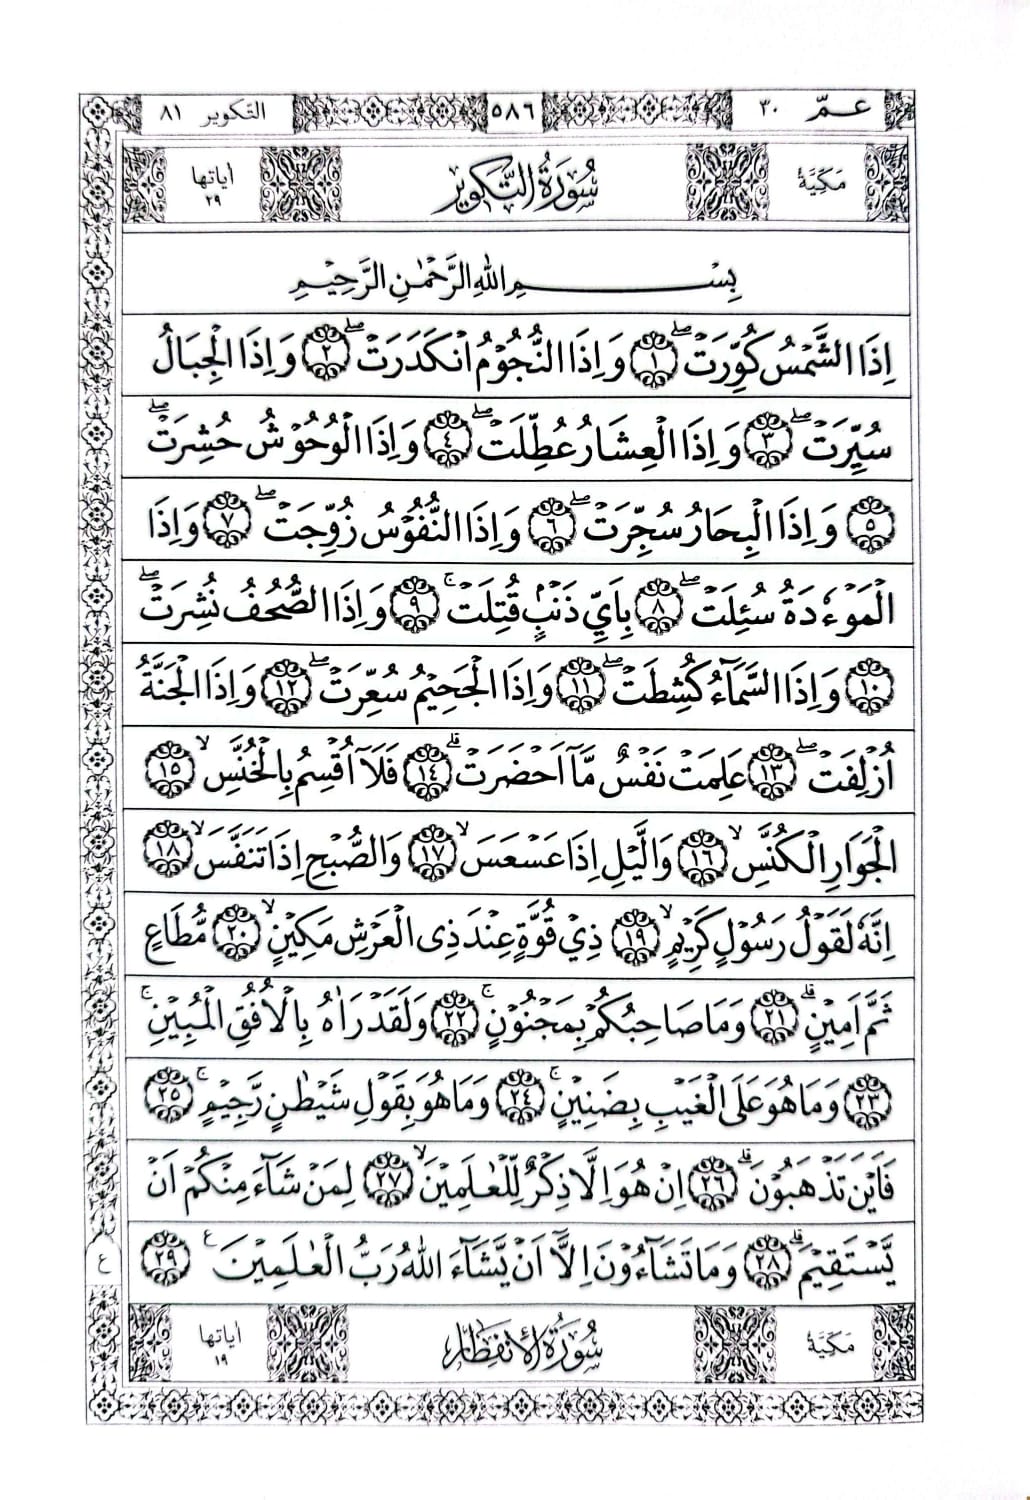 عـمّ ٣٠ ٥٨٦ التكوير ٨١
مَكِّيَّةٌ سُوْرَةُ التَّكْوِيْرِ أياتها ٢٩
بِسْــــــمِ اللهِ الرَّحْمٰنِ الرَّحِيْمِ
اِذَا الشَّمْسُ كُوِّرَتْ ۖ ١ وَاِذَا النُّجُوْمُ انْكَدَرَتْ ۖ ٢ وَاِذَا الْجِبَالُ
سُيِّرَتْ ۖ ٣ وَاِذَا الْعِشَارُ عُطِّلَتْ ۖ ٤ وَاِذَا الْوُحُوْشُ حُشِرَتْ ۖ
٥ وَاِذَا الْبِحَارُ سُجِّرَتْ ۖ ٦ وَاِذَا النُّفُوْسُ زُوِّجَتْ ۖ ٧ وَاِذَا
الْمَوْءٗدَةُ سُئِلَتْ ۖ ٨ بِاَيِّ ذَنْۢبٍ قُتِلَتْ ۚ ٩ وَاِذَا الصُّحُفُ نُشِرَتْ ۖ
١٠ وَاِذَا السَّمَآءُ كُشِطَتْ ۖ ١١ وَاِذَا الْجَحِيْمُ سُعِّرَتْ ۖ ١٢ وَاِذَا الْجَنَّةُ
اُزْلِفَتْ ۖ ١٣ عَلِمَتْ نَفْسٌ مَّآ اَحْضَرَتْ ۗ ١٤ فَلَآ اُقْسِمُ بِالْخُنَّسِ ۙ ١٥
الْجَوَارِ الْكُنَّسِ ۙ ١٦ وَالَّيْلِ اِذَا عَسْعَسَ ۙ ١٧ وَالصُّبْحِ اِذَا تَنَفَّسَ ۙ ١٨
اِنَّهٗ لَقَوْلُ رَسُوْلٍ كَرِيْمٍ ۙ ١٩ ذِيْ قُوَّةٍ عِنْدَ ذِى الْعَرْشِ مَكِيْنٍ ۙ ٢٠ مُّطَاعٍ
ثَمَّ اَمِيْنٍ ۗ ٢١ وَمَا صَاحِبُكُمْ بِمَجْنُوْنٍ ۚ ٢٢ وَلَقَدْ رَاٰهُ بِالْاُفُقِ الْمُبِيْنِ ۚ
٢٣ وَمَا هُوَ عَلَى الْغَيْبِ بِضَنِيْنٍ ۚ ٢٤ وَمَا هُوَ بِقَوْلِ شَيْطٰنٍ رَّجِيْمٍ ۚ ٢٥
فَاَيْنَ تَذْهَبُوْنَ ۗ ٢٦ اِنْ هُوَ اِلَّا ذِكْرٌ لِّلْعٰلَمِيْنَ ۙ ٢٧ لِمَنْ شَآءَ مِنْكُمْ اَنْ
يَّسْتَقِيْمَ ۗ ٢٨ وَمَا تَشَآءُوْنَ اِلَّآ اَنْ يَّشَآءَ اللهُ رَبُّ الْعٰلَمِيْنَ ࣖ ٢٩
ع
مَكِّيَّةٌ سُوْرَةُ الْاِنْفِطَارِ أياتها ١٩